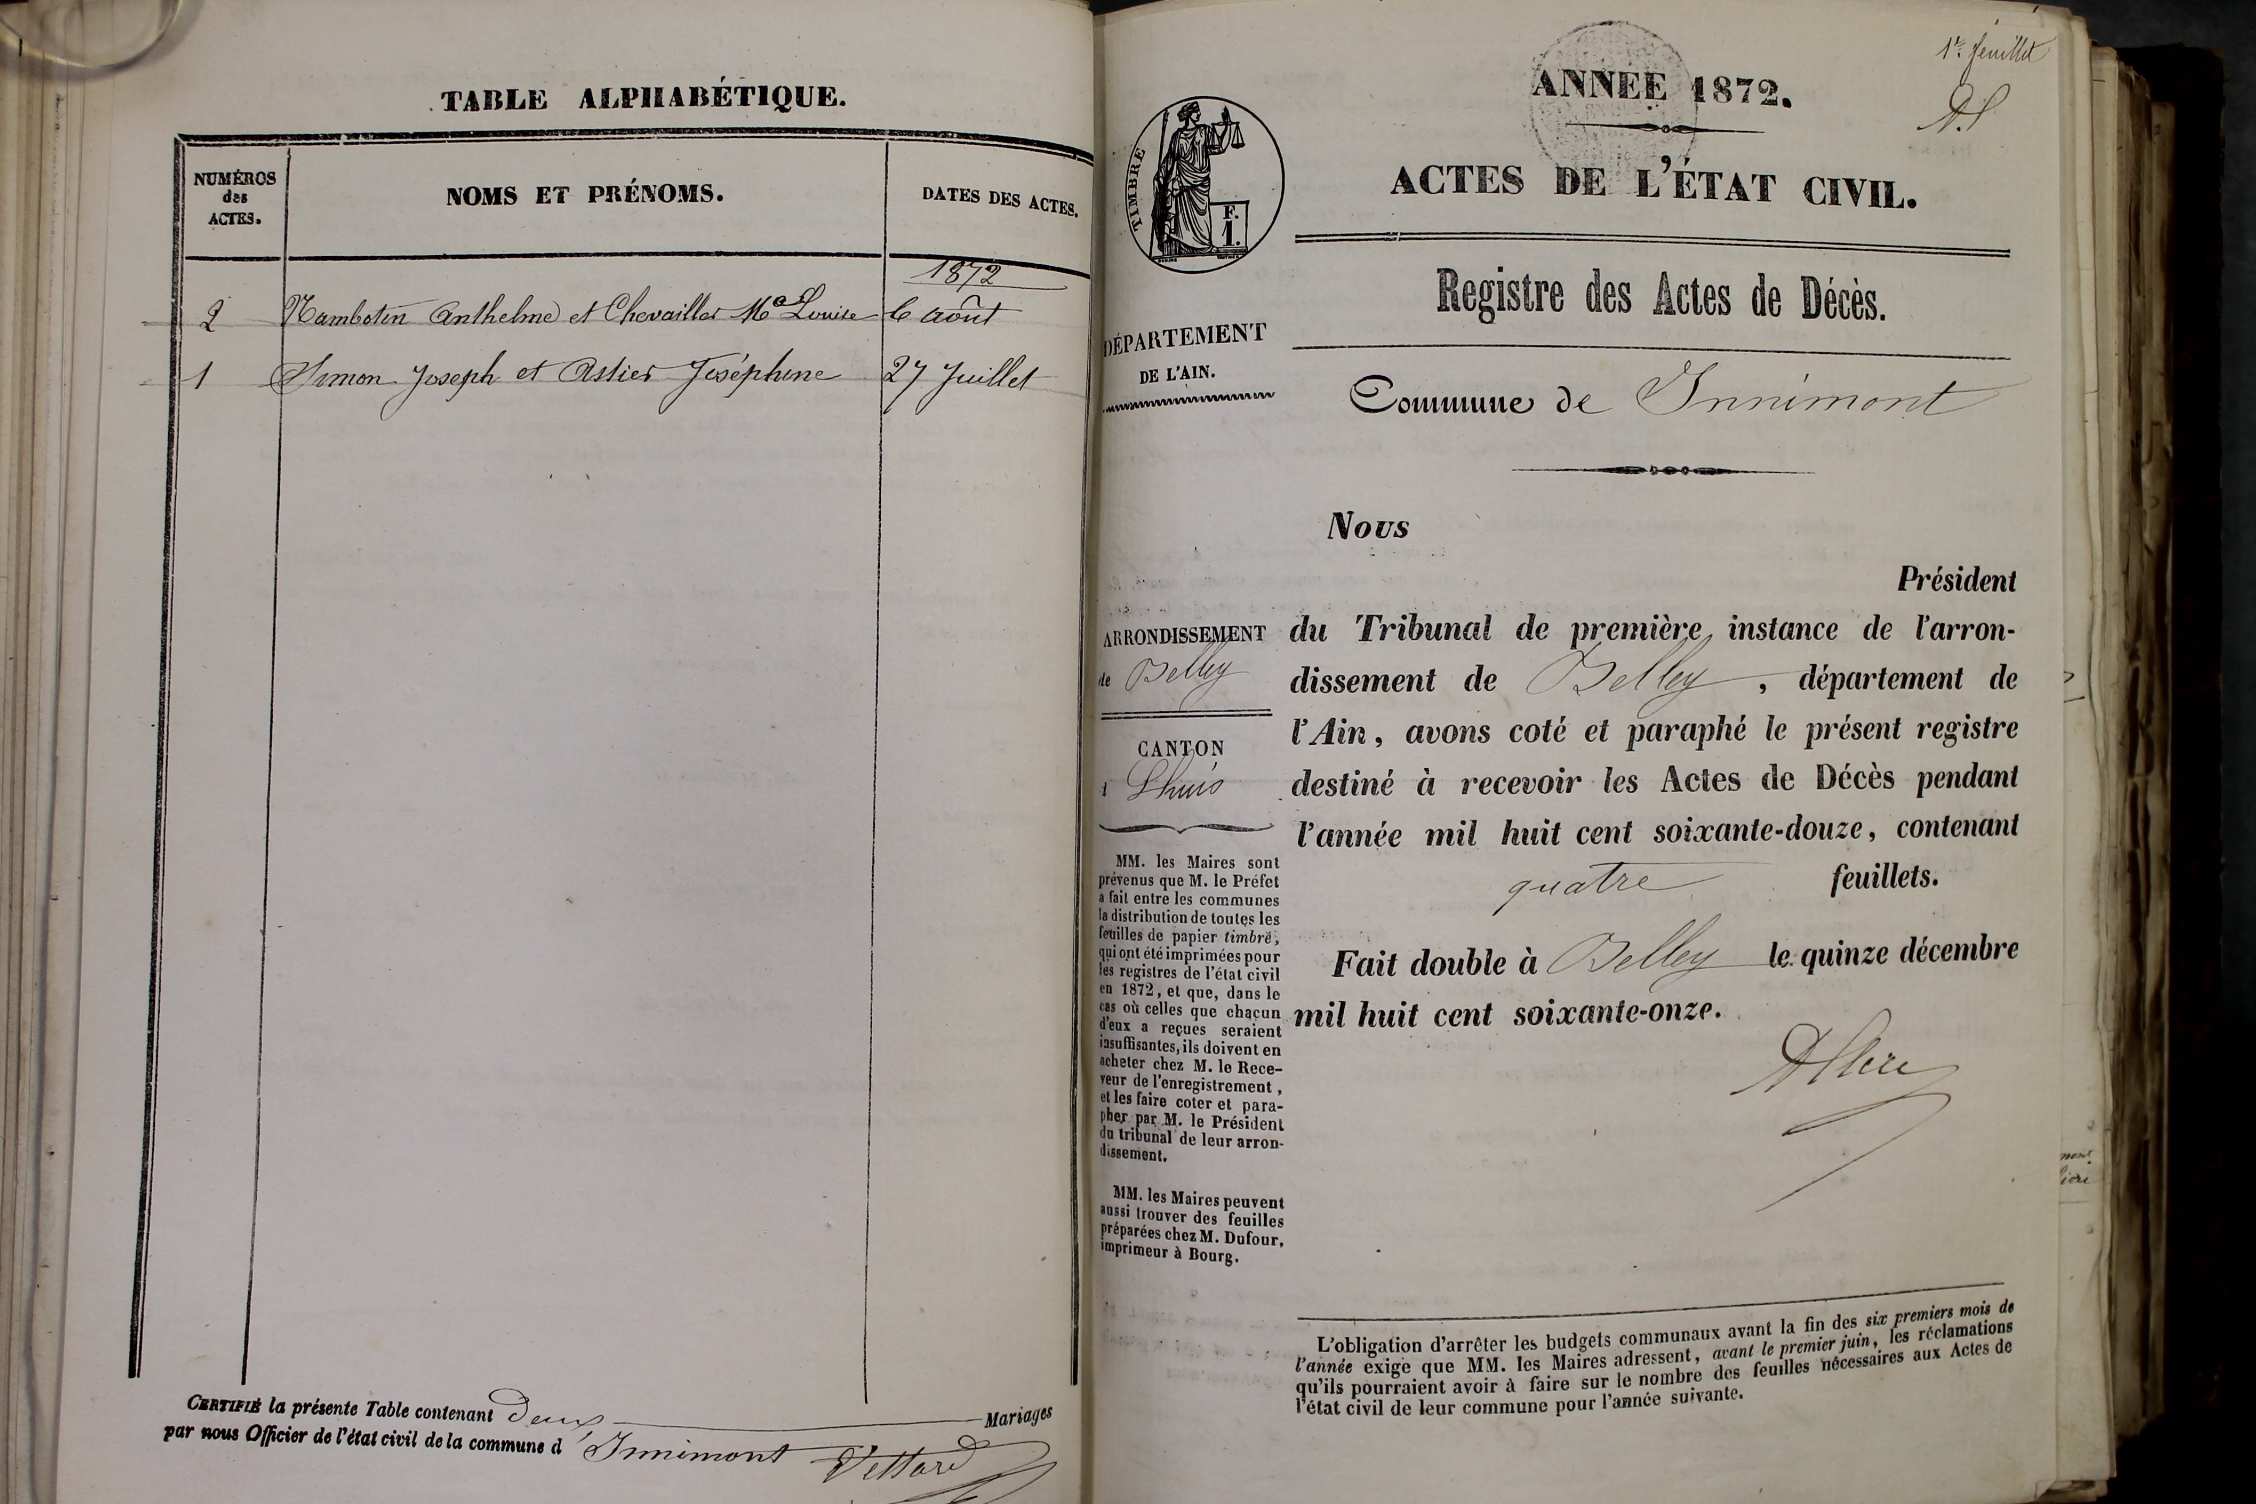 TABLE ALPHABÉTIQUE.
NUMÉROS
des
ACTES.
NOMS ET PRÉNOMS.
DATES DES ACTES.
1872
2 Nambotin Anthelme et Chevailler Ma Louise 6 août
1 Simon Joseph et Astier Joséphine 27 Juillet
CERTIFIÉ la présente Table contenant deux Mariages
par nous Officier de l'état civil de la commune d'Innimont Vettard
1er feuillet
ANNEE 1872.
ACTES DE L'ÉTAT CIVIL.
TIMBRE
F.
1.
Registre des Actes de Décès.
DÉPARTEMENT
DE L'AIN.
Commune de Innimont
ARRONDISSEMENT
de Belley
CANTON
d Lhuis
MM. les Maires sont
prévenus que M. le Préfet
a fait entre les communes
la distribution de toutes les
feuilles de papier timbré,
qui ont été imprimées pour
les registres de l'état civil
en 1872, et que, dans le
cas où celles que chacun
d'eux a reçues seraient
insuffisantes, ils doivent en
acheter chez M. le Rece-
veur de l'enregistrement,
et les faire coter et para-
pher par M. le Président
du tribunal de leur arron-
dissement.
MM. les Maires peuvent
aussi trouver des feuilles
préparées chez M. Dufour,
imprimeur à Bourg.
Nous
Président
du Tribunal de première instance de l'arron-
dissement de Belley, département de
l'Ain, avons coté et paraphé le présent registre
destiné à recevoir les Actes de Décès pendant
l'année mil huit cent soixante-douze, contenant
quatre feuillets.
Fait double à Belley le quinze décembre
mil huit cent soixante-onze.
L'obligation d'arrêter les budgets communaux avant la fin des six premiers mois de
l'année exige que MM. les Maires adressent, avant le premier juin, les réclamations
qu'ils pourraient avoir à faire sur le nombre des feuilles nécessaires aux Actes de
l'état civil de leur commune pour l'année suivante.